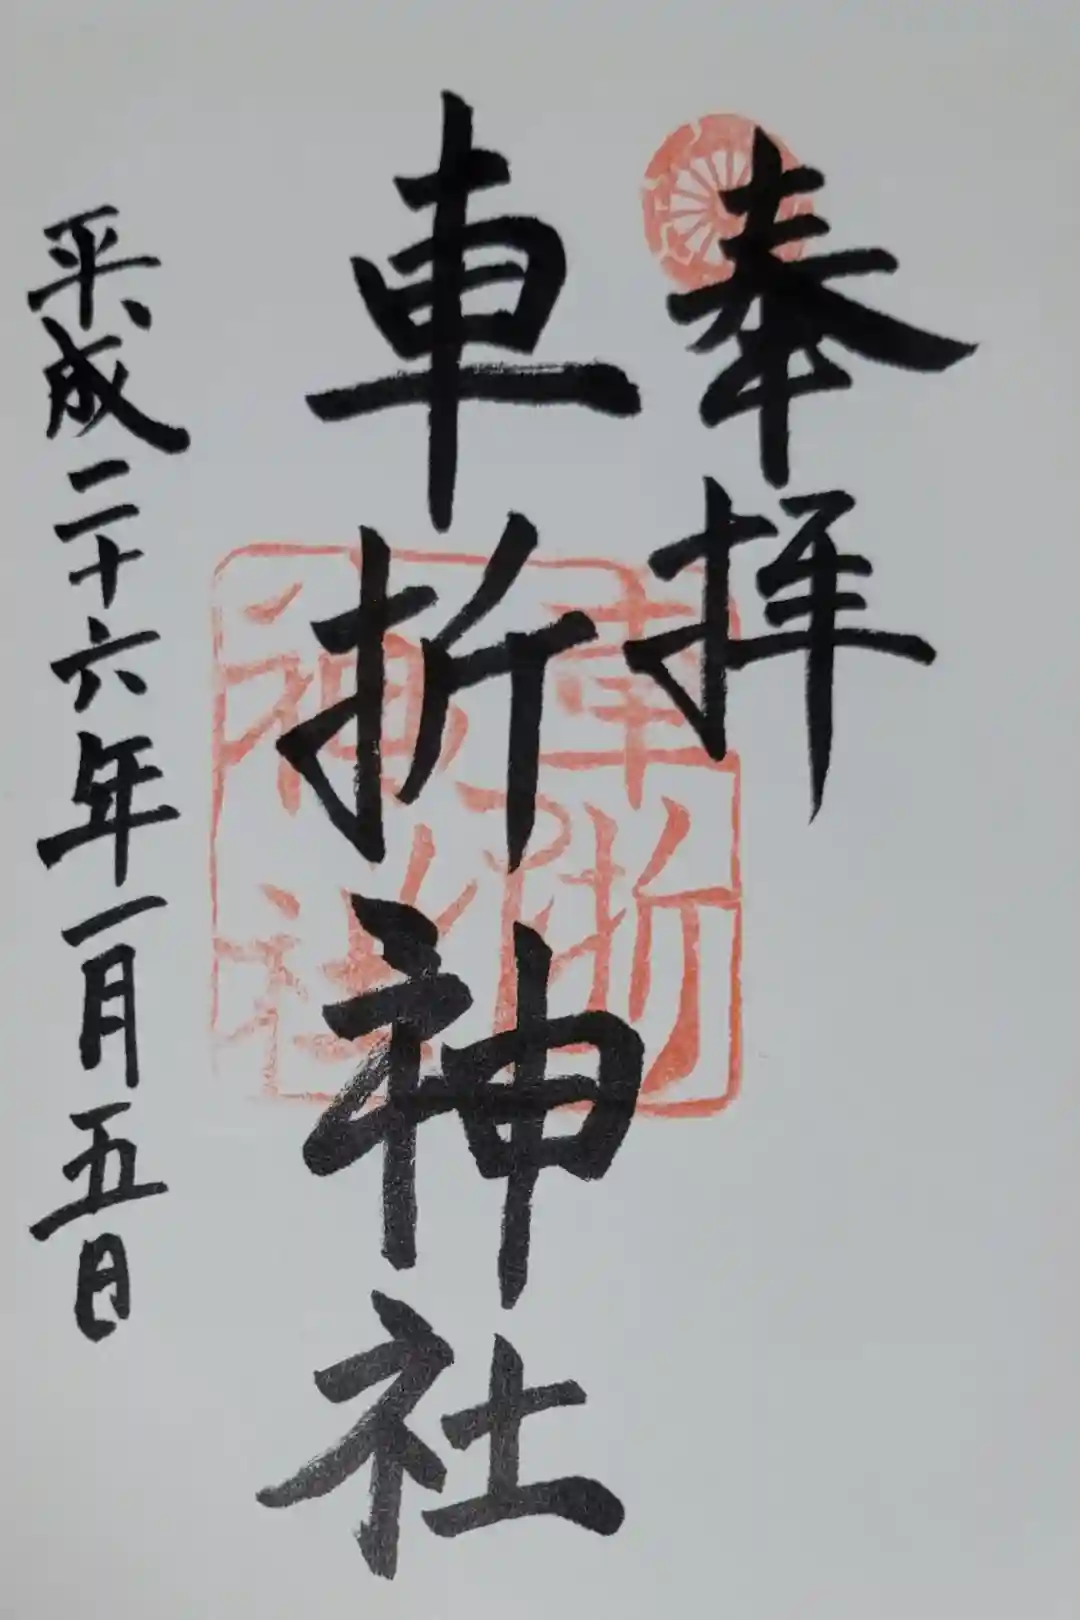 奉拝
車折神社
車折
神社
平成二十六年一月五日